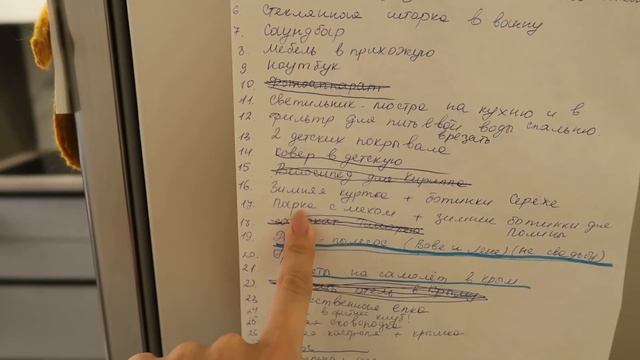 6 Стеклянная шторка в ванну
7. Саундбар
8. Мебель в прихожую
9. Ноутбук
10. Фотоаппарат
11. Светильник-люстра на кухню и в спальню
12 Фильтр для питьевой воды врезать
13 2 детских покрывала
14. Ковер в детскую
15. Велосипед для Кирилла
16. Зимняя куртка + ботинки Сереже
17. Парка с мехом + зимние ботинки для Полины
18.
19. (Вове и Лене) (на свадьбу)
20.
21. на самолёт в Крым
22. отель в Крыму
23 ёлка
24 в фитнес клуб!
25 сковородка
26 + крышка